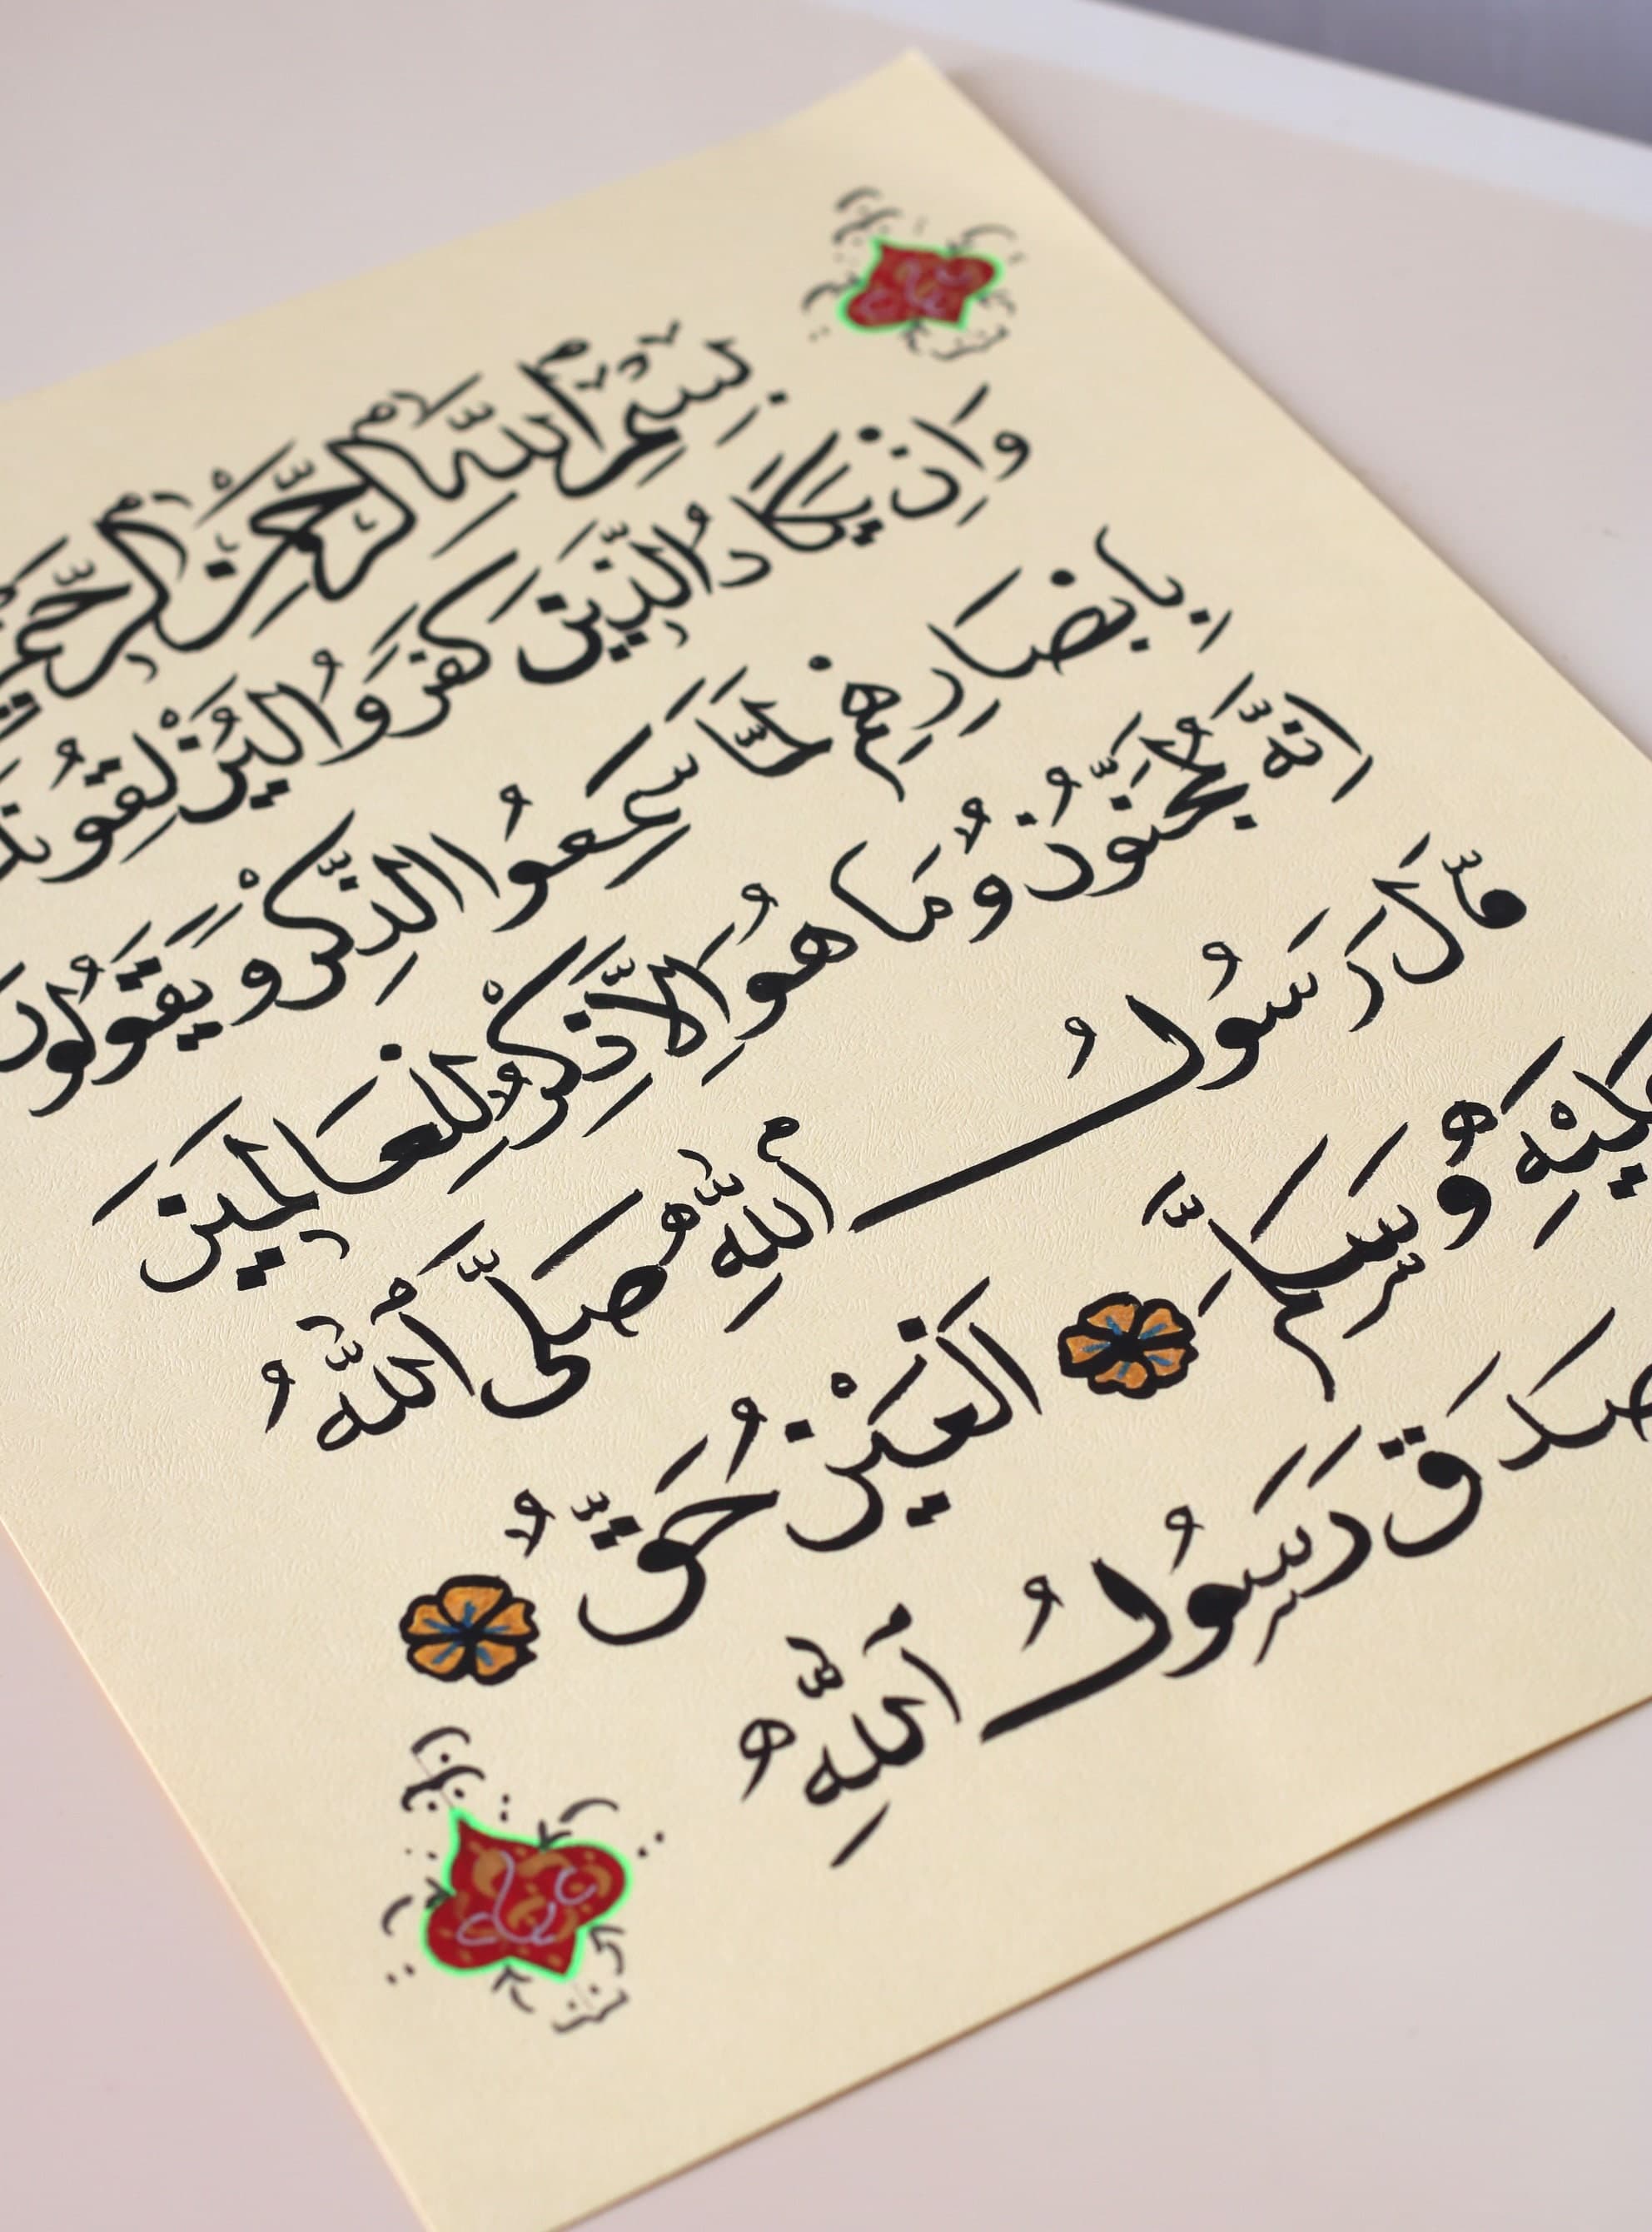 بِسْمِ اللَّهِ الرَّحْمٰنِ الرَّحِيمِ
وَاِنْ يَكَادُ الَّذِينَ كَفَرُوا لَيُزْلِقُونَكَ
بِاَبْصَارِهِمْ لَمَّا سَمِعُوا الذِّكْرَ وَيَقُولُونَ
اِنَّهُ لَمَجْنُونٌ وَمَا هُوَ اِلَّا ذِكْرٌ لِلْعَالَمِينَ
قَالَ رَسُولُ اللَّهِ صَلَّى اللَّهُ
عَلَيْهِ وَسَلَّمَ اَلْعَيْنُ حَقٌّ
صَدَقَ رَسُولُ اللَّهِ